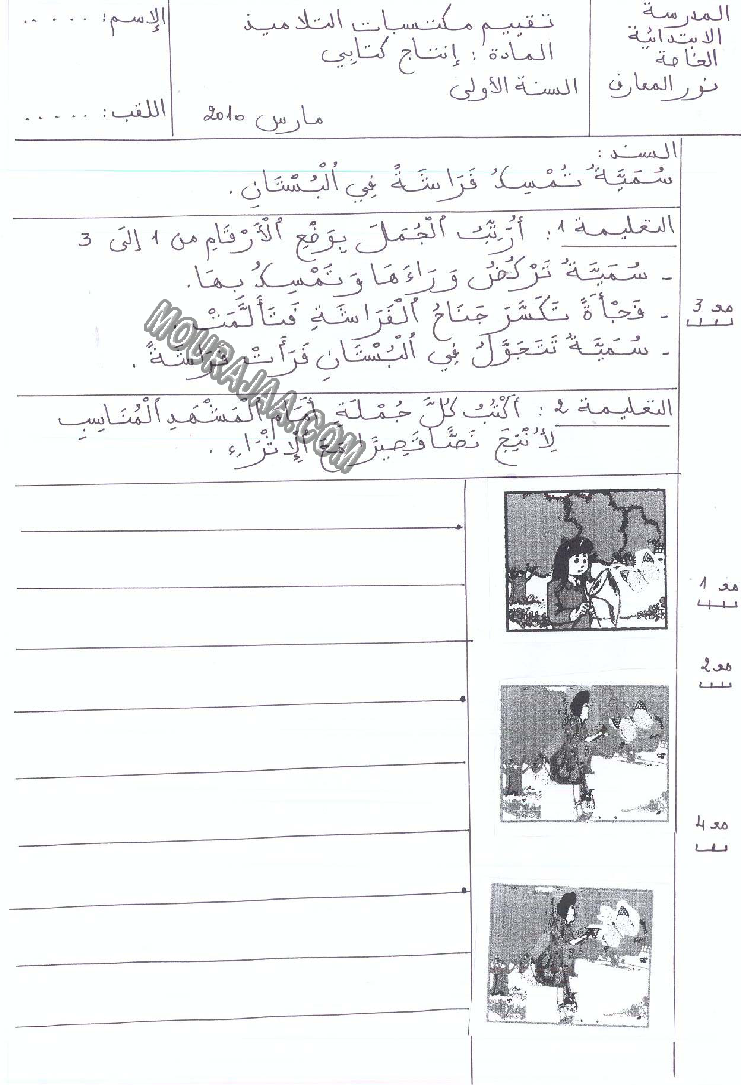 المدرسة
الابتدائية
الخاصة
نور المعارف
تقييم مكتسبات التلاميذ
المادة : إنتاج كتابي
السنة الأولى
مارس 2010
الإسم: . . . . .
اللقب: . . . . .
السند:
سُمَيَّةُ تُمْسِكُ فَرَاشَةً فِي اُلْبُسْتَانِ .
التعليمة 1 : أُرَتِّبُ اُلْجُمَلَ بِوَضْعِ اُلْأَرْقَامِ من 1 إلَى 3
- سُمَيَّةُ تَرْكُضُ وَرَاءَهَا وَتُمْسِكُ بِهَا.
- فَجْأَةً تَكَسَّرَ جَنَاحُ اُلْفَرَاشَةِ فَتَأَلَّمَتْ .
- سُمَيَّةُ تَتَجَوَّلُ فِي اُلْبُسْتَانِ فَرَأَتْ فَرَاشَةً .
التعليمة 2 : أكْتُبُ كُلَّ جُمْلَةٍ أَمَامَ اُلْمَشْهَدِ اُلْمُنَاسِبِ
لِأُنْتِجَ نَصًّا قَصِيرًا مَعَ اُلْإِثْرَاءِ .
مع 3
مع 1
مع 2
مع 4
MOURAJAA.COM